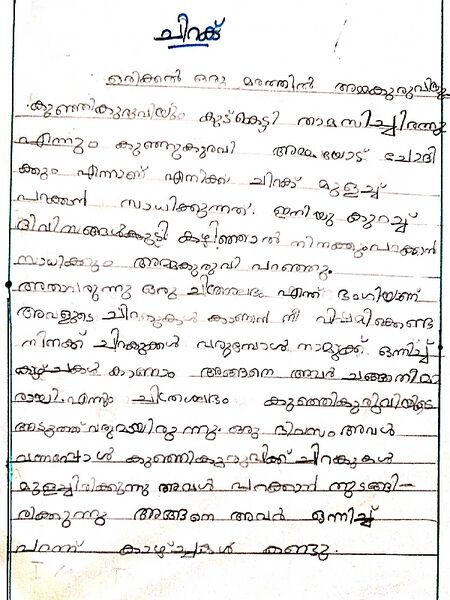 ചിറക്
ഒരിക്കൽ ഒരു മരത്തിൽ അമ്മകുരുവിയും
കുഞ്ഞികുരുവിയും കൂട്കെട്ടി താമസിച്ചിരുന്നു
എന്നും കുഞ്ഞുകുരുവി അമ്മയോട് ചോദി
ക്കും എന്നാണ് എനിക്ക് ചിറക് മുളച്ച്
പറക്കാൻ സാധിക്കുന്നത്. ഇനിയു കുറച്ച്
ദിവസങ്ങൾകൂടി കഴിഞ്ഞാൽ നിനക്കുംപറക്കാൻ
സാധിക്കും അമ്മകുരുവി പറഞ്ഞു.
അതാവരുന്നു ഒരു ചിത്രശലഭം എന്ത് ഭംഗിയാണ്
അവളുടെ ചിറകുകൾ കാണാൻ നീ വിഷമിക്കേണ്ട
നിനക്ക് ചിറകുക്കൾ വരുമ്പോൾ നാമുക്ക് ഒന്നിച്ച്
കാഴ്ചകൾ കാണാം അങ്ങനെ അവർ ചങ്ങാതിമാ
രായി. എന്നും ചിത്രശലഭം കുഞ്ഞികുരുവിയുടെ
അടുത്ത് വരുമായിരുന്നു. ഒരു ദിവസം അവൾ
വന്നപ്പോൾ കുഞ്ഞികുരുവിക്ക് ചിറകുകൾ
മുളച്ചിരിക്കുന്നു അവൾ പറക്കാൻ തുടങ്ങി-
രിക്കുന്നു അങ്ങനെ അവർ ഒന്നിച്ച്
പറന്ന് കാഴ്ച്ചകൾ കണ്ടു.